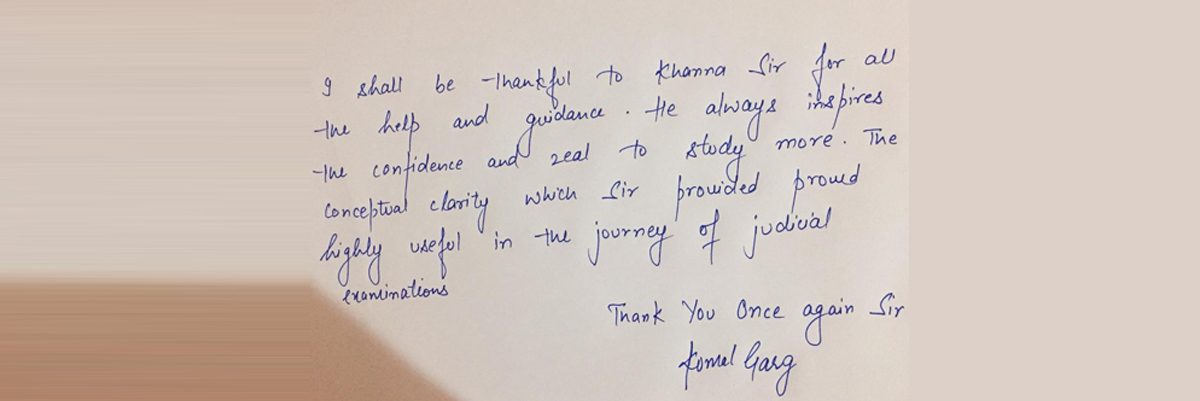 I shall be thankful to Khanna Sir for all
the help and guidance. He always inspires
the confidence and zeal to study more. The
conceptual clarity which Sir provided proved
highly useful in the journey of judicial
examinations
Thank You Once again Sir
Komal Garg